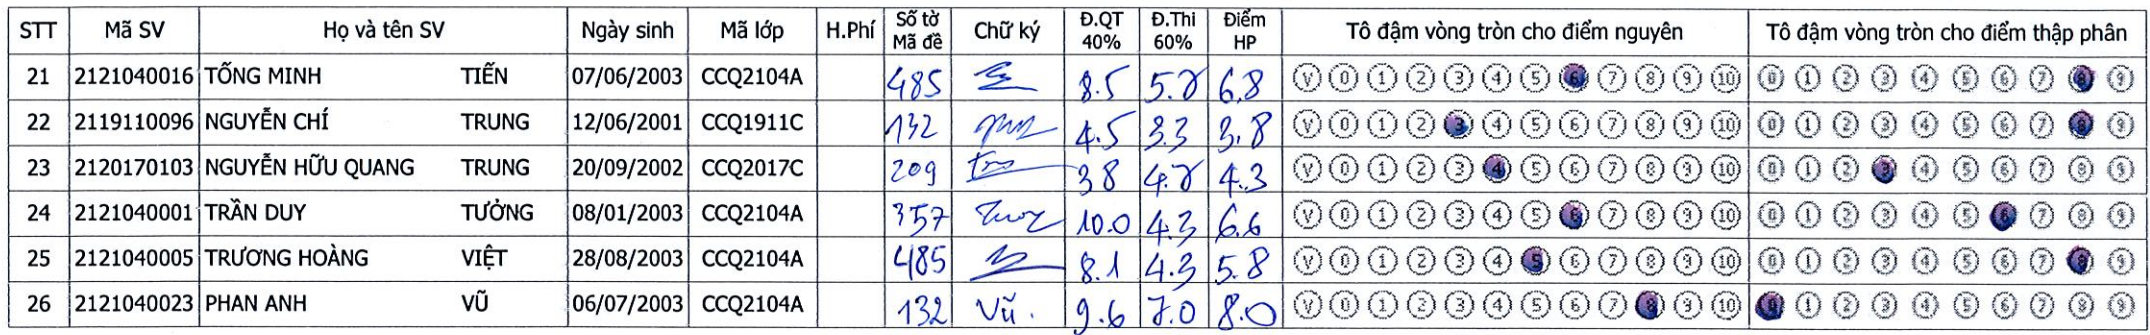 STT Mã SV Họ và tên SV Ngày sinh Mã lớp H.Phí Số tờ Mã đề Chữ ký Đ.QT 40% Đ.Thi 60% Điểm HP Tô đậm vòng tròn cho điểm nguyên Tô đậm vòng tròn cho điểm thập phân
21 2121040016 TỐNG MINH TIẾN 07/06/2003 CCQ2104A 485 8.5 6.8 V 0 1 2 3 4 5 6 7 8 9 10 0 1 2 3 4 5 6 7 8 9
22 2119110096 NGUYỄN CHÍ TRUNG 12/06/2001 CCQ1911C 132 4.5 3.3 3.8 V 0 1 2 3 4 5 6 7 8 9 10 0 1 2 3 4 5 6 7 8 9
23 2120170103 NGUYỄN HỮU QUANG TRUNG 20/09/2002 CCQ2017C 209 3.8 4.3 V 0 1 2 3 4 5 6 7 8 9 10 0 1 2 3 4 5 6 7 8 9
24 2121040001 TRẦN DUY TƯỞNG 08/01/2003 CCQ2104A 357 10.0 4.3 6.6 V 0 1 2 3 4 5 6 7 8 9 10 0 1 2 3 4 5 6 7 8 9
25 2121040005 TRƯƠNG HOÀNG VIỆT 28/08/2003 CCQ2104A 485 8.1 4.3 5.8 V 0 1 2 3 4 5 6 7 8 9 10 0 1 2 3 4 5 6 7 8 9
26 2121040023 PHAN ANH VŨ 06/07/2003 CCQ2104A 132 Vũ. 9.6 7.0 8.0 V 0 1 2 3 4 5 6 7 8 9 10 0 1 2 3 4 5 6 7 8 9